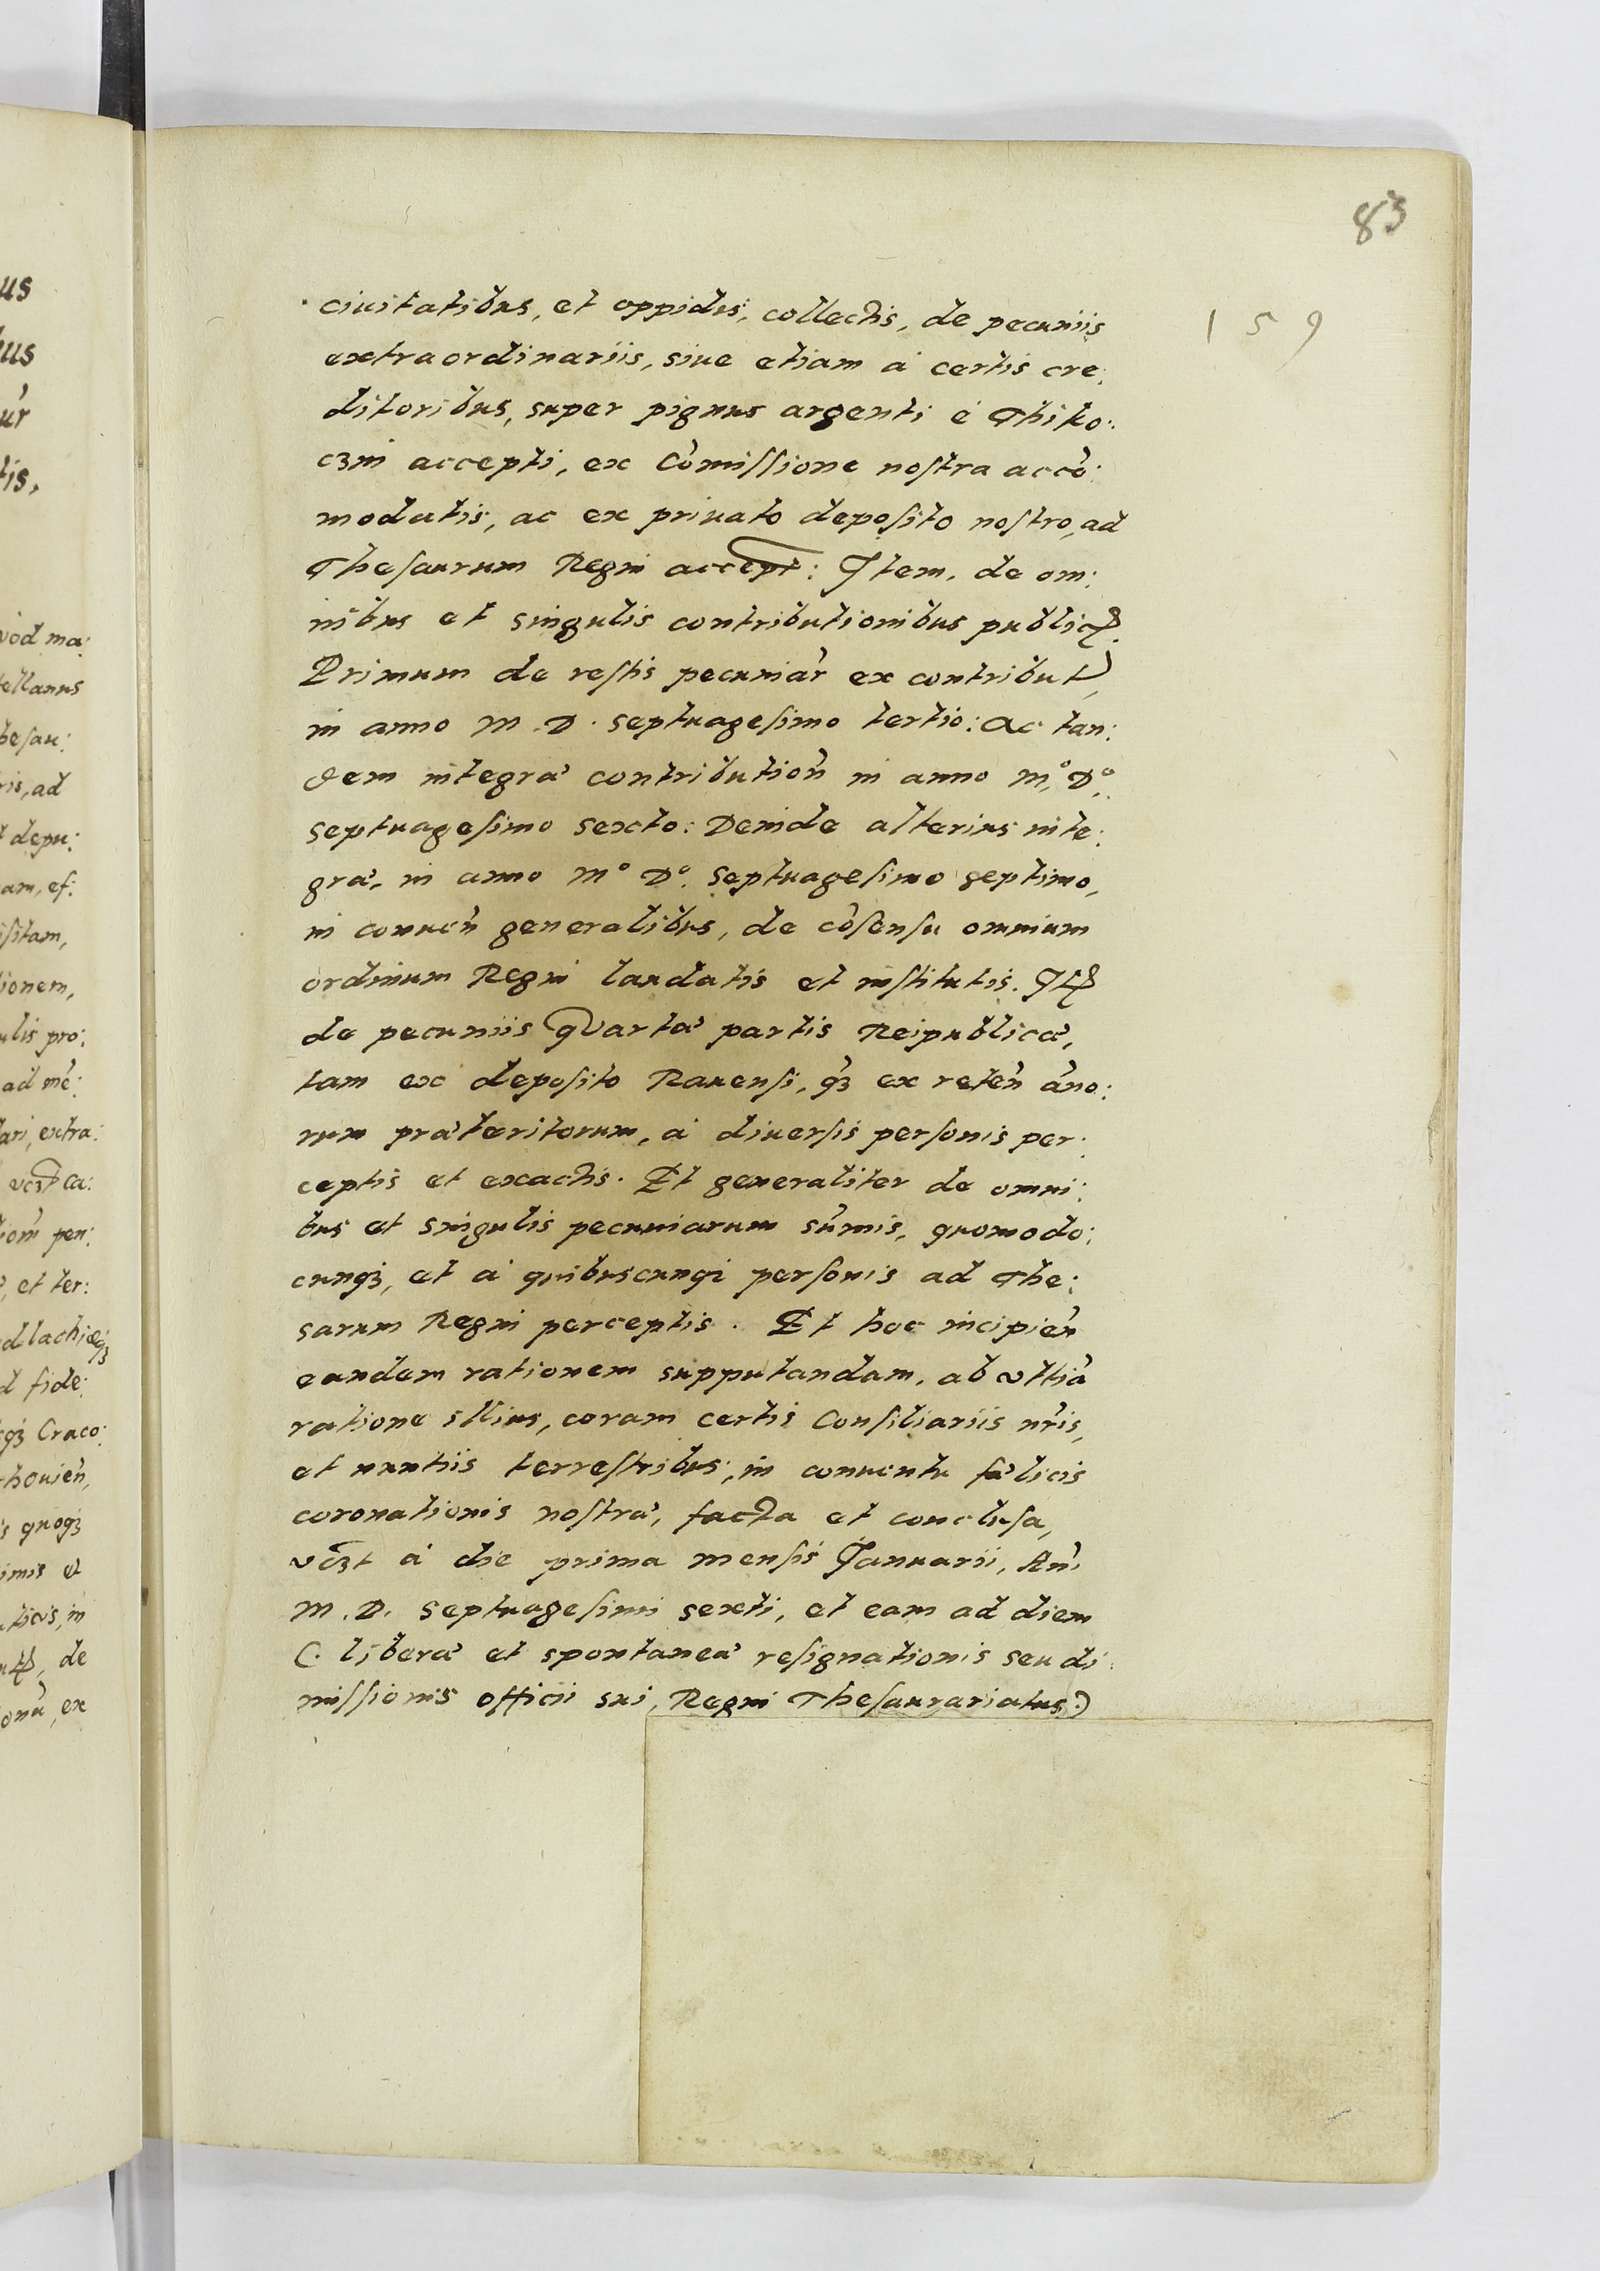 83
159
ciuitatibus, et oppidis, collectis, de pecuniis
extraordinariis, siue etiam à certis cre:
ditoribus, super pignus argenti è Thiko:
czin accepti, ex Cõmissione nostra accõ:
modatis, ac ex priuato deposito nostro, ad
Thesaurum Regni accept: Item, de om:
nibus et singulis contributionibus public
Primum de restis pecuniar ex contribut,
in anno M.D. septuagesimo tertio: Ac tan:
dem integra contribution in anno M.º Dº
septuagesimo sexto: Deinde alterius inte:
gra, in anno Mº Dº. septuagesimo septimo,
in conuen generalibus, de cõsensu omnium
ordinum Regni laudatis et institutis. It
de pecuniis quarta partis Reipublica,
tam ex deposito Rauensi, qz ex reten ãno:
rum prateritorum, à diuersis personis per:
ceptis et exactis. Et generaliter de omni:
bus et singulis pecuniarum sũmis, quomodo:
cunqz, et à quibuscunqz personis ad The:
sarum Regni perceptis. Et hoc incipien
eandem rationem supputandam, ab vltia
ratione illius, coram certis Consiliariis nris,
et nuntiis terrestribus, in conuentu falicis
coronationis nostra, facta et conclusa,
vczt à die prima mensis Januarii, Ani
M.D. septuagesimi sexti, et eam ad diem
(. libera et spontanea resignationis seu di:
missionis officii sui, Regni Thesaurariatus.)
us
us
ur
tis,
vod ma:
tellanus
besau:
ris, ad
depu:
am, ef:
isitam,
tionem,
ulis pro:
ad me:
lari, extra:
vczt ca:
iom pen:
et ter:
dlachieqz
d fide:
qz Craco:
houien,
s quoqz
imis et
ticis, in
de
onu, ex